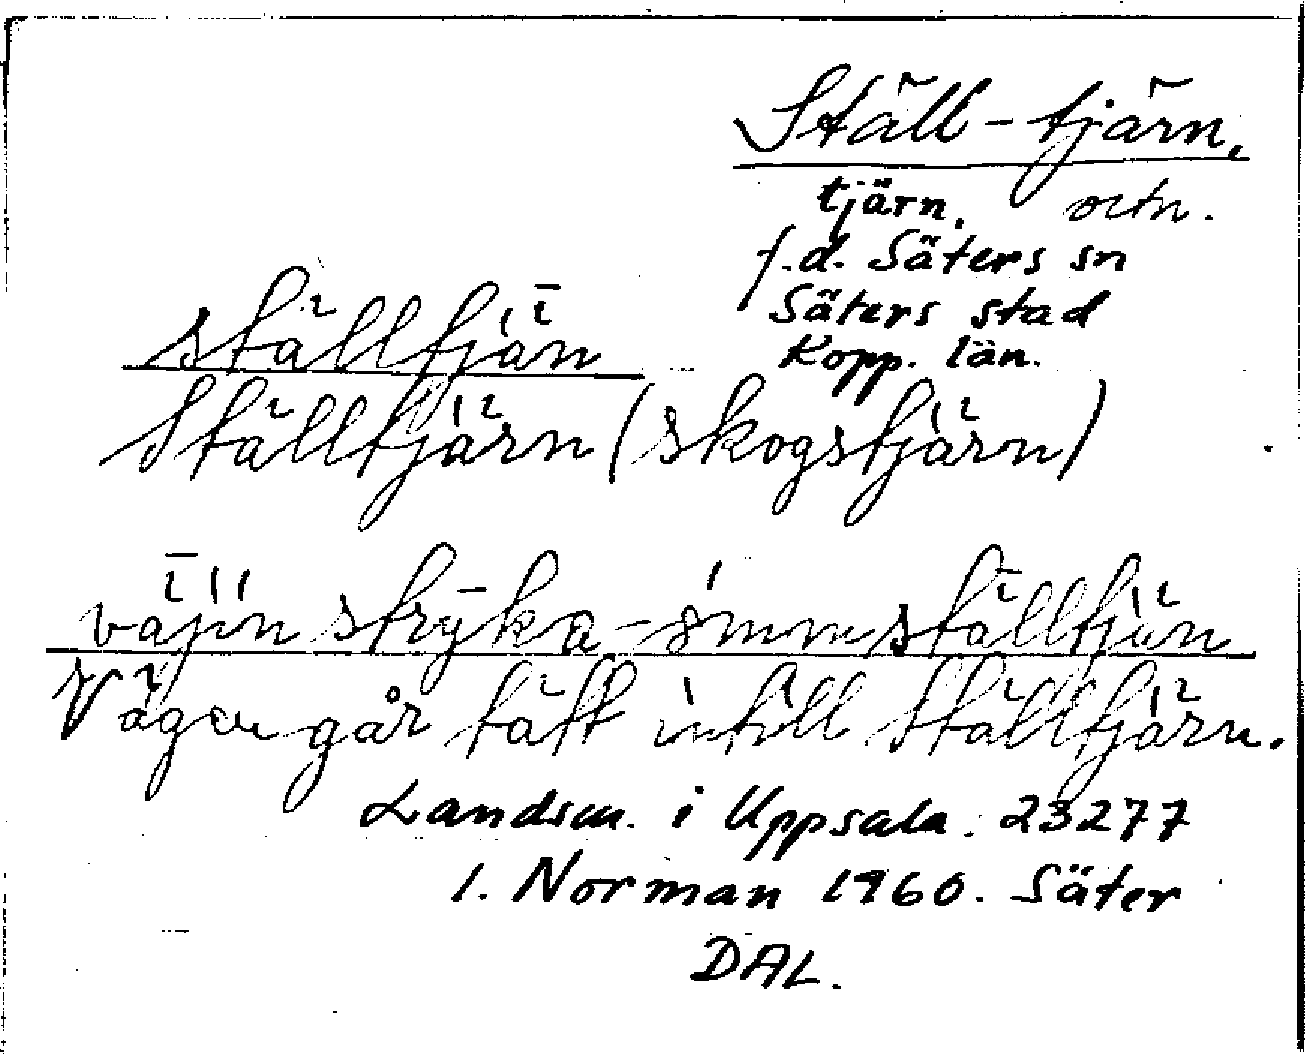 Ställ-tjärn,
tjärn, ortn.
f.d. Säters sn
Säters stad
Kopp. län.
ställtjän
Ställtjärn (skogstjärn)
väjin strȳka-simm ställtjän
Vägen går tätt intill Ställtjärn.
Landsm. i Uppsala. 23277
I. Norman 1960. Säter
DAL.